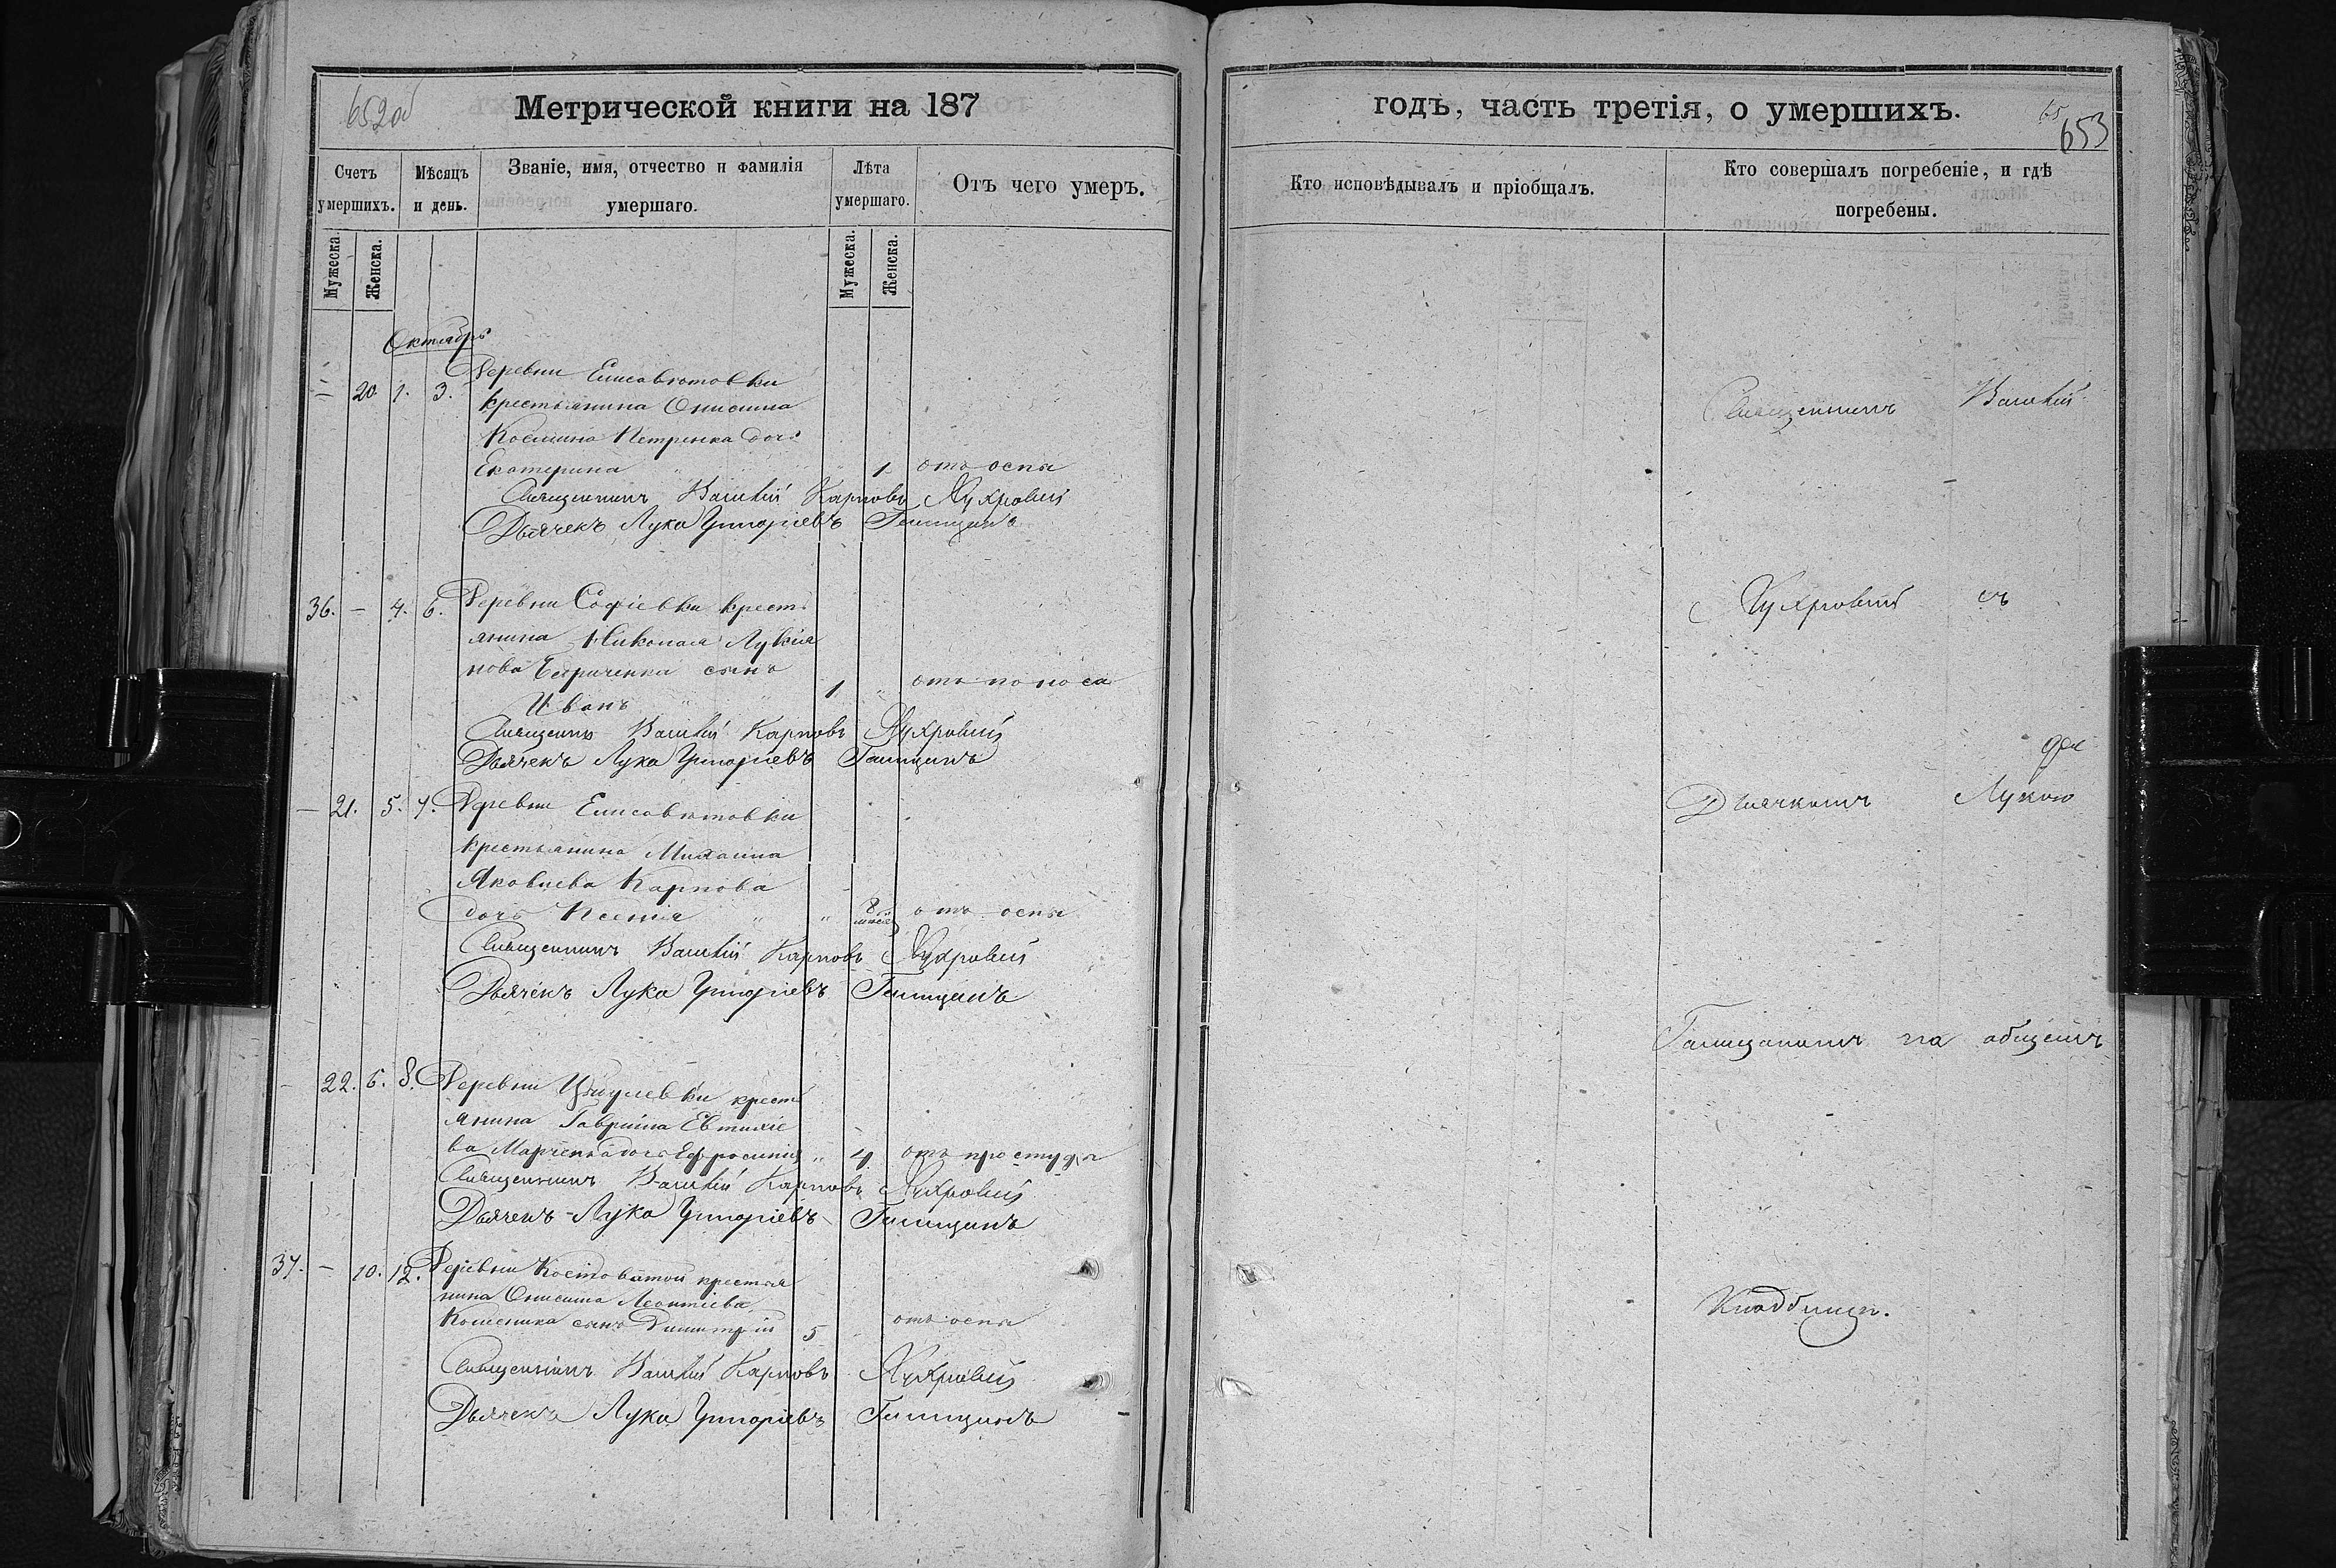 652об
Метрической книги на 187
Счетъ умершихъ.
Мѣсяцъ и день.
Званіе, имя, отчество и фамилія умершаго.
Лѣта умершаго.
Отъ чего умеръ.
Мужеска.
Женска.
Мужеска.
Женска.
Октябрь
20. 1. 3. Деревни Елисаветовки
крестьянина Онисима
Петренка дочь
Екатерина " 1 отъ оспы
Священникъ Василій Карповъ
Дьячекъ Лука Григоріевъ Галицынъ
36. – 4. 6. Деревни Софіевки кресть
янина Николая Лукія
нова сынъ
Иванъ " 1 " отъ поноса
Священникъ Василій Карповъ
Дьячекъ Лука Григоріевъ Галицынъ
– 21. 5. 7. Деревни Елисаветовки
крестьянина Михаила
Яковлева Карпова
дочь Ксенія " " 8 отъ оспы
Священникъ Василій Карповъ
Дьячекъ Лука Григоріевъ Галицынъ
– 22. 6. 8. Деревни кресть
янина Гавріила Евтихіе
ва дочь Ефросинія " 4 отъ простуды
Священникъ Василій Карповъ
Дьячекъ Лука Григоріевъ Галицынъ
37. – 10. 12. Деревни Костоватой крестья
нина Онисима Леонтіева
сынъ Димитрій 5 отъ оспы
Священникъ Василій Карповъ
Дьячекъ Лука Григоріевъ Галицынъ
годъ, часть третія, о умершихъ.
65
653
Кто исповѣдывалъ и пріобщалъ.
Кто совершалъ погребеніе, и гдѣ
погребены.
Священникъ Василій
съ
Дьячкомъ Лукою
на общемъ
Кладбищѣ.